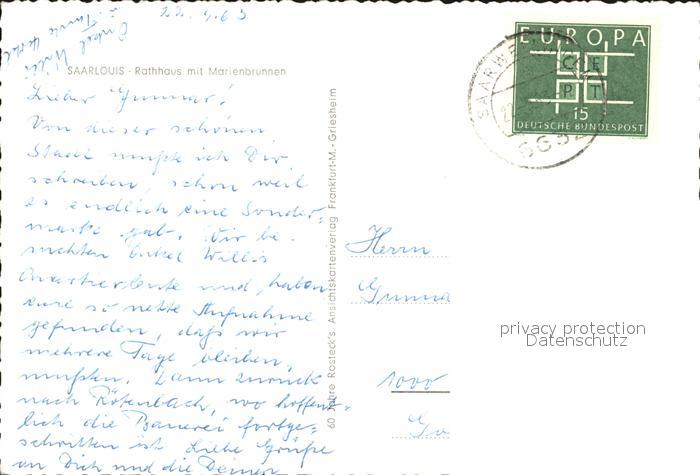 22.9.63
Onkel Willi
u. Tante
SAARLOUIS - Rathhaus mit Marienbrunnen
Lieber Gunnar!
Von dieser schönen
Stadt mußte ich Dir
schreiben, schon weil
es endlich eine Sonder-
marke gab. Wir be-
suchten Onkel Willis
Quartiersleute und haben
eine so nette Aufnahme
gefunden, daß wir
mehrere Tage bleiben
mußten. Dann zurück
nach Rötenbach, wo hoffent-
lich die Bauerei fortge-
schritten ist. Liebe Grüße
an Dich und die Deinen
60 Jahre Rosteck's Ansichtskartenverlag Frankfurt-M.-Griesheim
EUROPA
CE
PT
15
DEUTSCHE BUNDESPOST
SAARWE
Herrn
Gunna
1000
privacy protection
Datenschutz